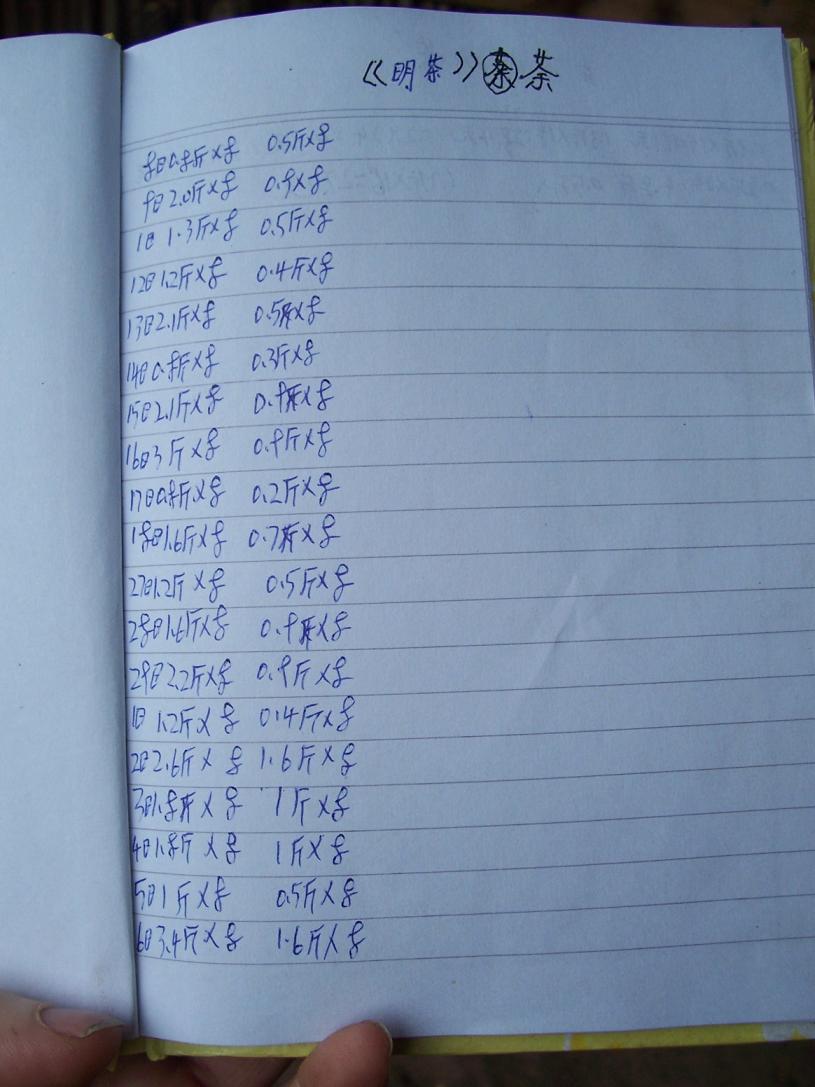 《明茶》茶
8日0.8斤×8 0.5斤×8
9日2.0斤×8 0.9×8
1日 1.3斤×8 0.5斤×8
12日1.2斤×8 0.4斤×8
13日2.1斤×8 0.5斤×8
14日0.8斤×8 0.3斤×8
15日2.1斤×8 0.9斤×8
16日3斤×8 0.9斤×8
17日0.8斤×8 0.2斤×8
18日1.6斤×8 0.7斤×8
27日1.2斤×8 0.5斤×8
28日1.6斤×8 0.9斤×8
29日2.2斤×8 0.9斤×8
1日 1.2斤×8 0.4斤×8
2日2.6斤×8 1.6斤×8
3日1.8斤×8 1斤×8
4日1.8斤×8 1斤×8
5日1斤×8 0.5斤×8
6日3.4斤×8 1.6斤×8